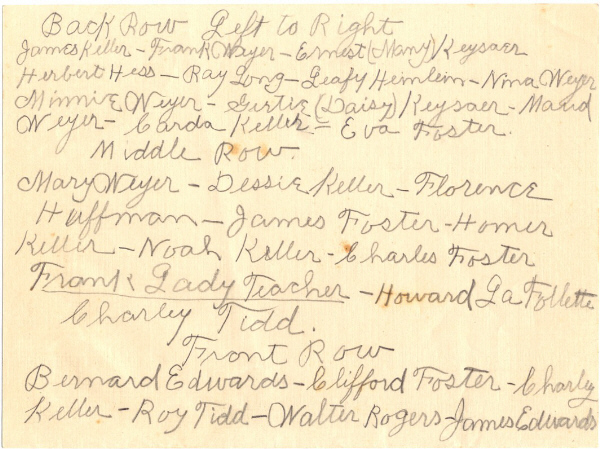 Back Row Left to Right
James Keller - Frank Weyer - Ernest (Many) Keysaer
Herbert Hess - Ray Long - Leafy Heinlein - Nina Weyer
Minnie Weyer - Gertie (Daisy) Keysaer - Maud
Weyer - Carda Keller = Eva Foster.
Middle Row.
Mary Weyer - Dessie Keller - Florence
Huffman - James Foster - Homer
Keller - Noah Keller - Charles Foster
Frank Lady Teacher - Howard La Follette
Charley Tidd.
Front Row
Bernard Edwards - Clifford Foster - Charley
Keller - Roy Tidd - Walter Rogers - James Edwards